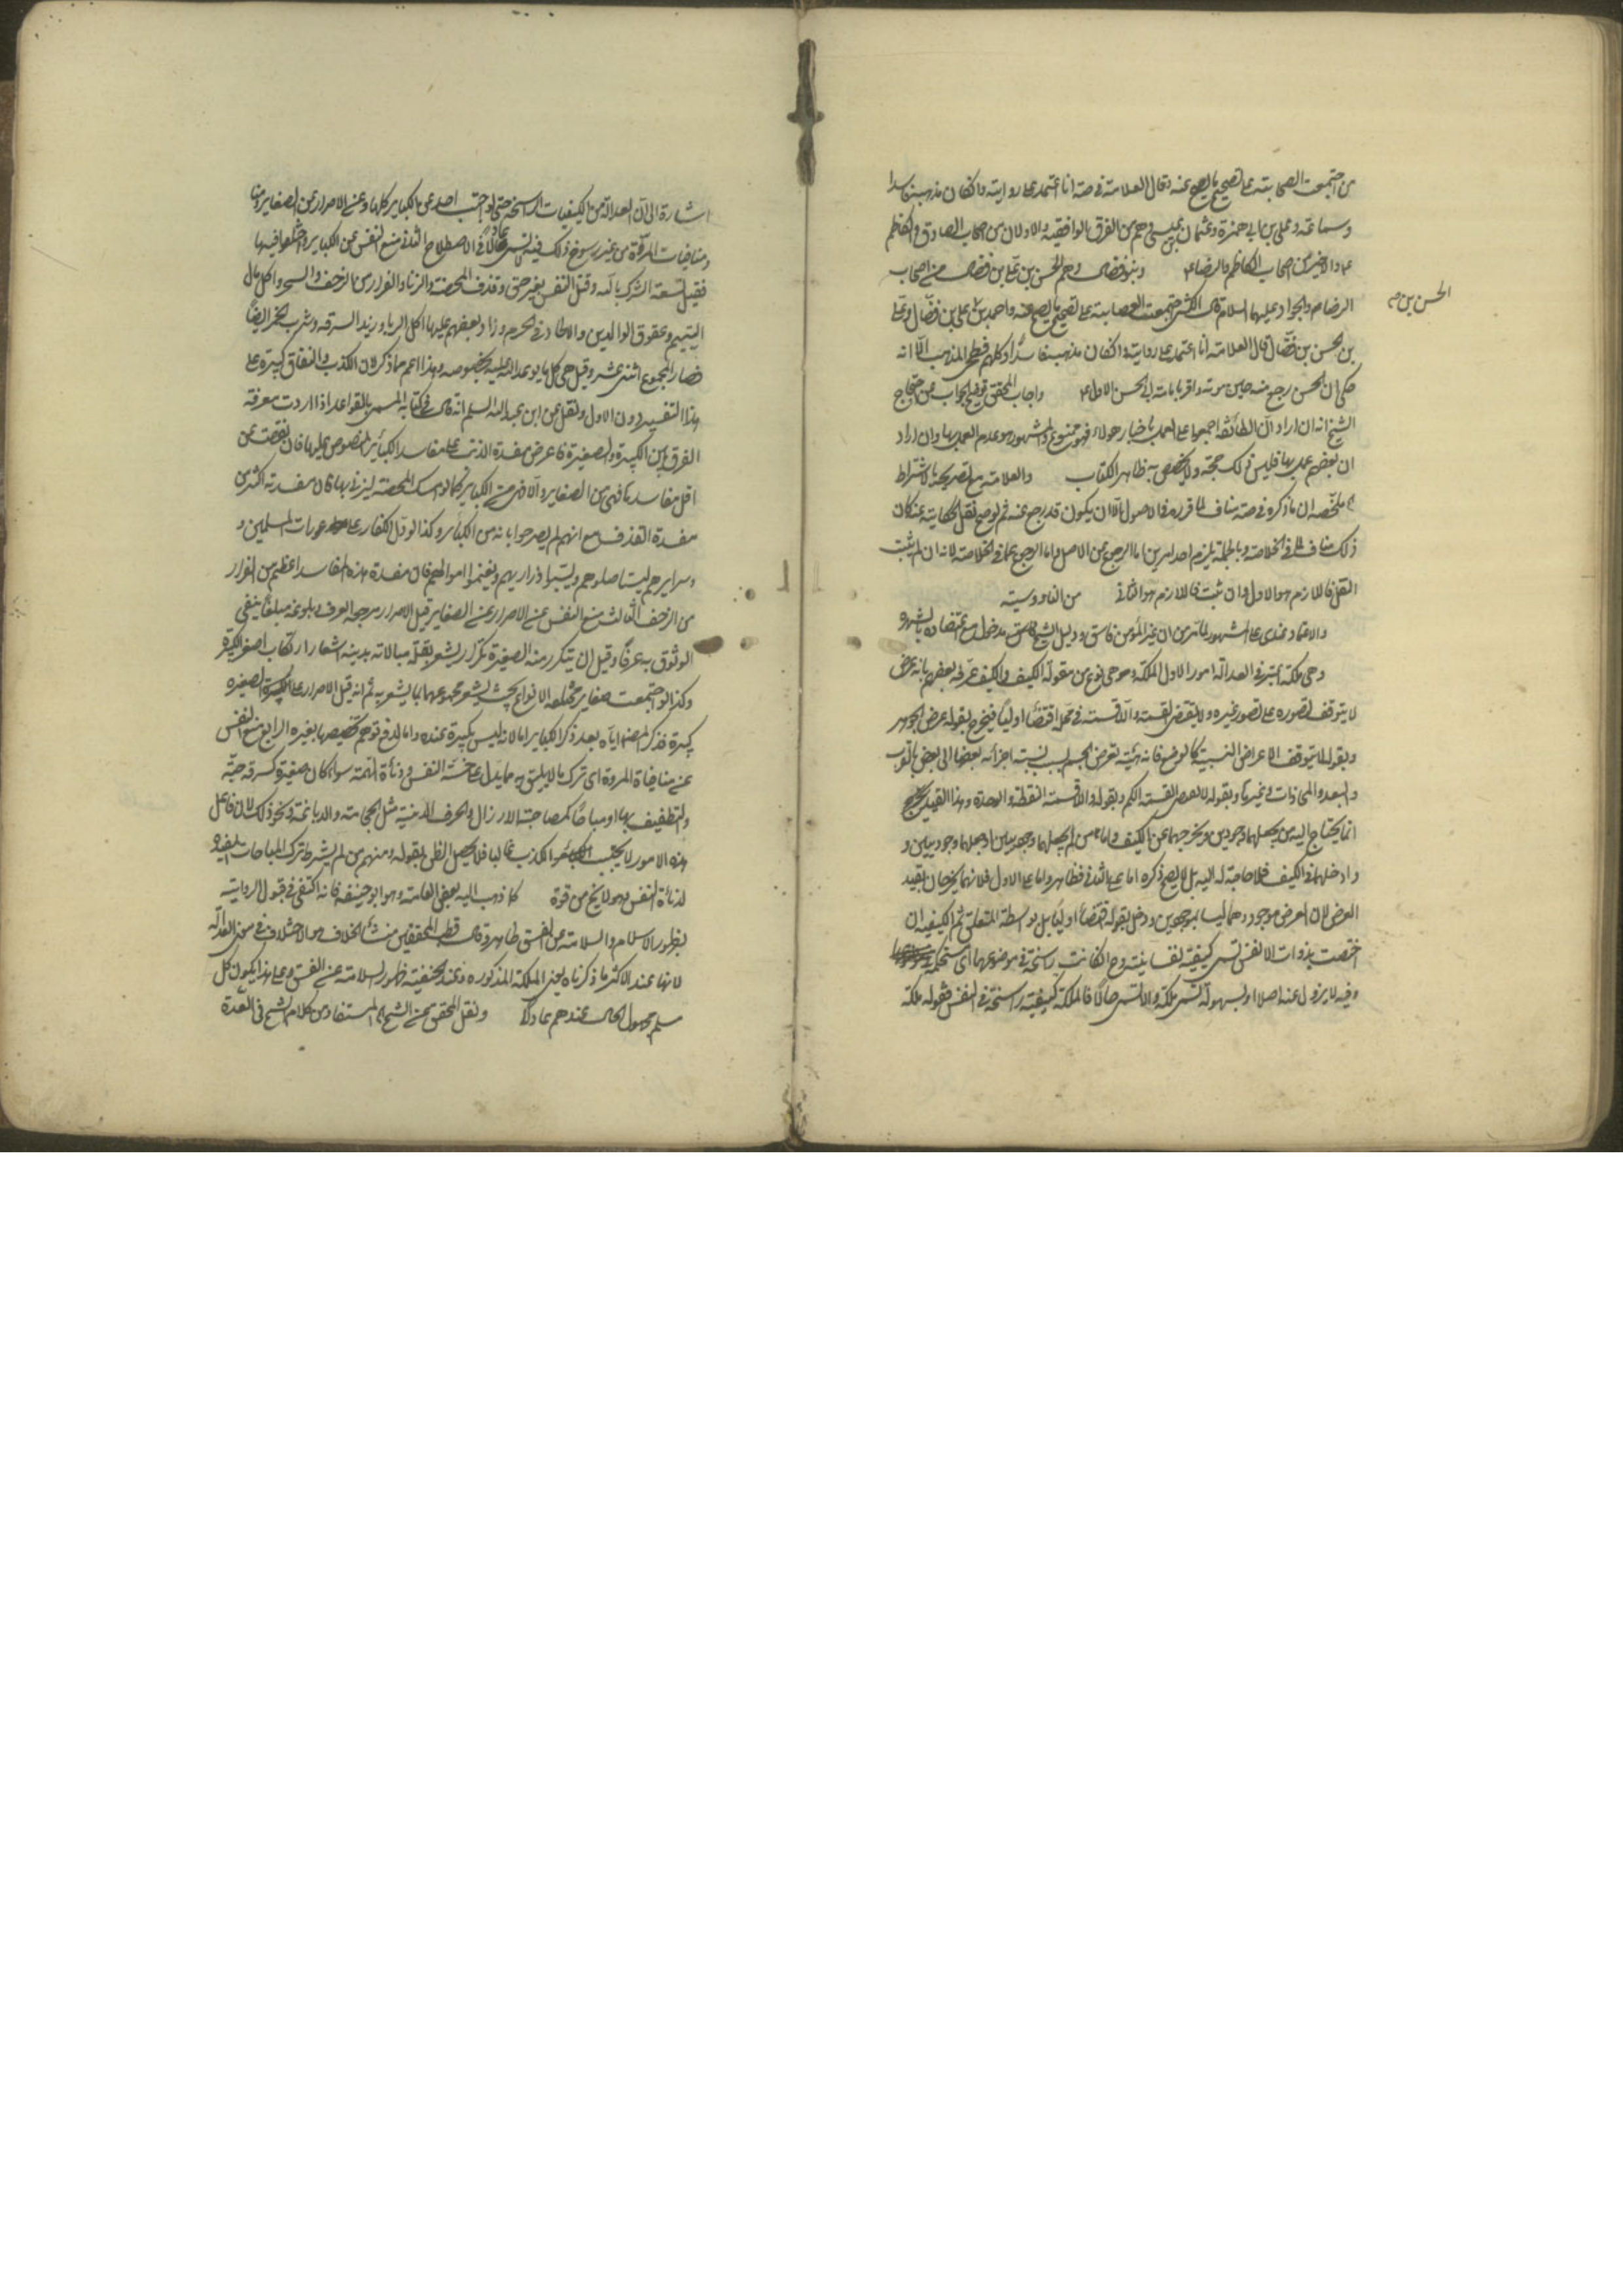 من اجتمعت الصحابة على تصحيح ما يصح عنه وقال العلامة في صه انا اعتمد على روايته وان كان مذهبه فاسدا
وسماعة وعلي بن ابي حمزة وعثمان بن عيسى وهم من الفرق الواقفية والاولان من اصحاب الصادق والكاظم
ع والاخير من اصحاب الكاظم والرضا ع وبنو فضال وهم الحسن بن علي بن فضال من اصحاب
الرضا والجواد عليهما السلام قال الكشي اجتمعت العصابة على تصحيح ما يصح عنه واحمد بن علي بن فضال وعلي
الحسن بن
بن الحسن بن فضال قال العلامة انا اعتمد على روايته وان كان مذهبه فاسدا وكلهم فطحي المذهب الا انه
حكى ان الحسن رجع منه حين موته واقر بامامة ابي الحسن الاول ع واجاب المحقق الجواب عن احتجاج
الشيخ انه ان اراد ان الطائفة اجمعوا على العمل باخبار هولاء فهو ممنوع والمشهور هو عدم العمل بها وان اراد
ان بعضهم عمل بها فليس ذلك حجة ولا يخصص به ظاهر الكتاب والعلامة مع تصريحه بالاشتراط
ملخصه ان ما ذكره في صه مناف لما قرره في الاصول الا ان يكون قد رجع عنه ثم لو صح نقل الحكاية عنه كان
ذلك مناف لما في الخلاصة وبالجملة يلزم احد امرين اما الرجوع عن الاصل واما الرجوع عما في الخلاصة لانه ان لم يثبت
النقل فاللازم هو الاول وان ثبت فاللازم هو الثاني من الناووسية
والاعتماد عندي على المشهور لما مر من ان غير المؤمن فاسق ودليل الشيخ مدخول مع اعتضاده بالشهرة
وهي ملكة يعتبر في العدالة امور الاول الملكة وهي نوع من مقولة الكيف والكيف عرفه بعضهم بانه عرض
لا يتوقف تصوره على تصور غيره ولا يقتضي القسمة واللاقسمة في محله اقتضاء اوليا فيخرج بقوله عرض الجوهر
وبقوله لا يتوقف الاعراض النسبية كالوضع فانه هيئة تعرض الجسم بسبب نسبة اجزائه بعضها الى بعض بالقرب
والبعد والمحاذات وغيرها وبقوله لا يقتضي القسمة الكم وبقوله واللاقسمة النقطة والوحدة وهذا القيد
انما يحتاج اليه من يجعلهما وجوديين ويخرجهما عن الكيف واما من لم يجعلهما وجوديين او جعلهما وجوديين و
وادخلهما في الكيف فلا حاجة له اليه بل لا يصح ذكره اما على الثاني فظاهر واما على الاول فلانهما يخرجان بقيد
العرض لان العرض موجود وهما ليسا بموجودين ودخل بقوله اقتضاء اوليا بل بواسطة المتعلق ثم الكيفية ان
اختصت بذوات الانفس تسمى كيفية نفسانية وح ان كانت راسخة في موضوعها اي مستحكمة
وفيه لا يزول عنه اصلا او بسهولة تسمى ملكة والا تسمى حالا فالملكة كيفية راسخة في النفس فقوله ملكة
اشارة الى ان العدالة من الكيفيات الراسخة حتى لو اجتنب احد عن الكبائر كلها وعن الاصرار عن الصغائر ومنا
ومنافيات المروة من غير رسوخ ذلك فيه لم يسم عادلا في الاصطلاح الثاني منع النفس عن الكبائر واختلفوا فيها
فقيل تسعة الشرك بالله وقتل النفس بغير حق وقذف المحصنة والزنا والفرار من الزحف والسحر واكل مال
اليتيم وعقوق الوالدين والالحاد في الحرم وزاد بعضهم عليها اكل الربا وزيد السرقة وشرب الخمر ايضا
فصار المجموع اثنتي عشر وقيل هي كل ما يوعد الله عليه بخصوصه وهذا اعم مما ذكر لان الكذب والنفاق كبيرة على
هذا التفسير دون الاول ونقل عن ابن عبد السلام انه قال في كتابه المسمى بالقواعد اذا اردت معرفة
الفرق بين الكبيرة والصغيرة فاعرض مفسدة الذنب على مفاسد الكبائر المنصوص عليها فان نقصت عن
اقل مفاسدها فهي من الصغائر والا فهي من الكبائر فمن امسك المحصنة ليزني بها فان مفسدته اكثر من
مفسدة القذف مع انهم لم يصرحوا بانه من الكبائر وكذا لو دل الكفار على عورات المسلمين و
وسرايرهم ليستاصلوهم ويسبوا ذراريهم ويغنموا اموالهم فان مفسدة هذه المفاسد اعظم من الفرار
من الزحف الثالث منع النفس عن الاصرار عن الصغائر قيل الاصرار مرجعه العرف بلوغه مبلغا ينفي
الوثوق به عرفا وقيل ان يتكرر منه الصغيرة تكرارا يشعر بقلة مبالاته بدينه اشعار ارتكاب اصغر الكبيرة
وكذا لو اجتمعت صغاير مختلفة الانواع بحيث يشعر مجموعها بما يشعر به ثم انه قيل الاصرار على الصغيرة
كبيرة فذكر المصنف اياه بعد ذكر الكبائر اما لانه ليس بكبيرة عنده واما لدفع توهم تخصيصها بغيره الرابع منع النفس
عن منافيات المروة اي ترك ما لا يليق به مما يدل على خسة النفس ودنائة الهمة سواء كان صغيرة كسرقة حبة
والتطفيف بها او مباحا كمصاحبة الارذال والحرف الدنية مثل الحجامة والدباغة ونحو ذلك لان فاعل
هذه الامور لا يجتنب الكذب غالبا فلا يحصل الظن بقوله ومنهم من لم يشترط ترك المباحات المفيدة
لدنائة النفس وهو لا يخ من قوة كما ذهب اليه بعض العامة وهو ابو حنيفة فانه اكتفى في قبول الرواية
بظهور الاسلام والسلامة عن الفسق ظاهر وقال قطب المحققين منشأ الخلاف هو الاختلاف في معنى العدالة
لانها عند الاكثر ما ذكرناه يعني الملكة المذكورة وعند الحنفية ظهور السلامة عن الفسق وعلى هذا يكون كل
مسلم مجهول الحال عندهم عادلا ونقل المحقق عن الشيخ المستفاد من كلام الشيخ في العدة